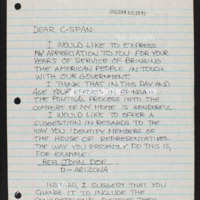 DEAR C-SPAN,
I WOULD LIKE TO EXPRESS
MY APPRECIATION TO YOU FOR YOUR
YEARS OF SERVICE OF BRINGING
THE AMERICAN PEOPLE IN TOUCH
WITH OUR GOVERNMENT.
I THINK THAT IN THIS DAY AND
AGE YOUR EFFORTS IN BRINGING
THE POLITICAL PROCESS INTO THE
COMFORT OF MY HOME IS WONDERFUL.
I WOULD LIKE TO OFFER A
SUGGESTION IN REGARDS TO THE
WAY YOU IDENTIFY MEMBERS OF
THE HOUSE OF REPRESENTATIVES.
THE WAY YOU PRESENTLY DO THIS IS,
FOR EXAMPLE:
REP. JOHN DOE
D-ARIZONA
INSTEAD, I SUGGEST THAT YOU
CHANGE IT TO INCLUDE THE